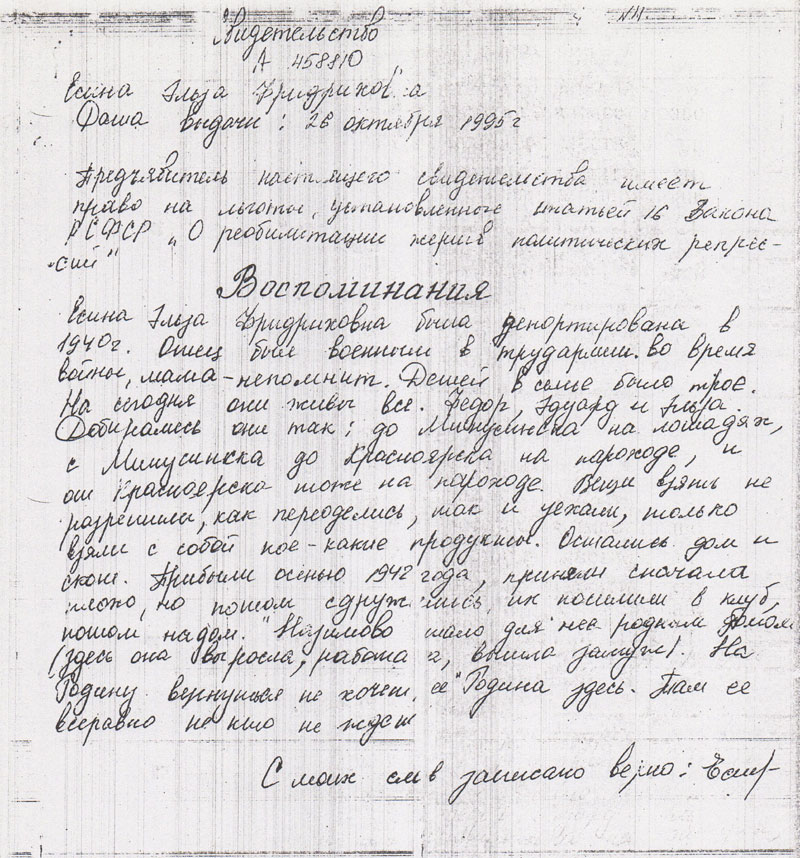 N 11
Свидетельство
А 458810
Есина Эльза Фридриховна
Дата выдачи: 26 октября 1995г
Предъявитель настоящего свидетельства имеет
право на льготы, установленные статьей 16 Закона
РСФСР „О реобилитации жертв политических репрес-
сий"
Воспоминания
Есина Эльза Фридриховна была депортирована в
1940г. Отец был военным в трудармии. во время
войны, мама - непомнит. Детей в семье было трое.
На сегодня они живы все. Федор, Эдуард и Эльза.
Добирались они так: до Минусинска на лошадях,
с Минусинска до Красноярска на пароходе, и
от Красноярска тоже на пароходе. Вещи взять не
разрешили, как переоделись, так и уехали, только
взяли с собой кое-какие продукты. Остались дом и
скот. Прибыли осенью 1942 года, приняли сначала
плохо, но потом сдружились, их поселили в клуб,
потом на дом. "Назимово стало для нее родным домом
(здесь она выросла, работала, вышла замуж). На
Родину вернуться не хочет, ее "Родина здесь. Там ее
всеравно не кто не ждет
С моих слов записано верно: Есин